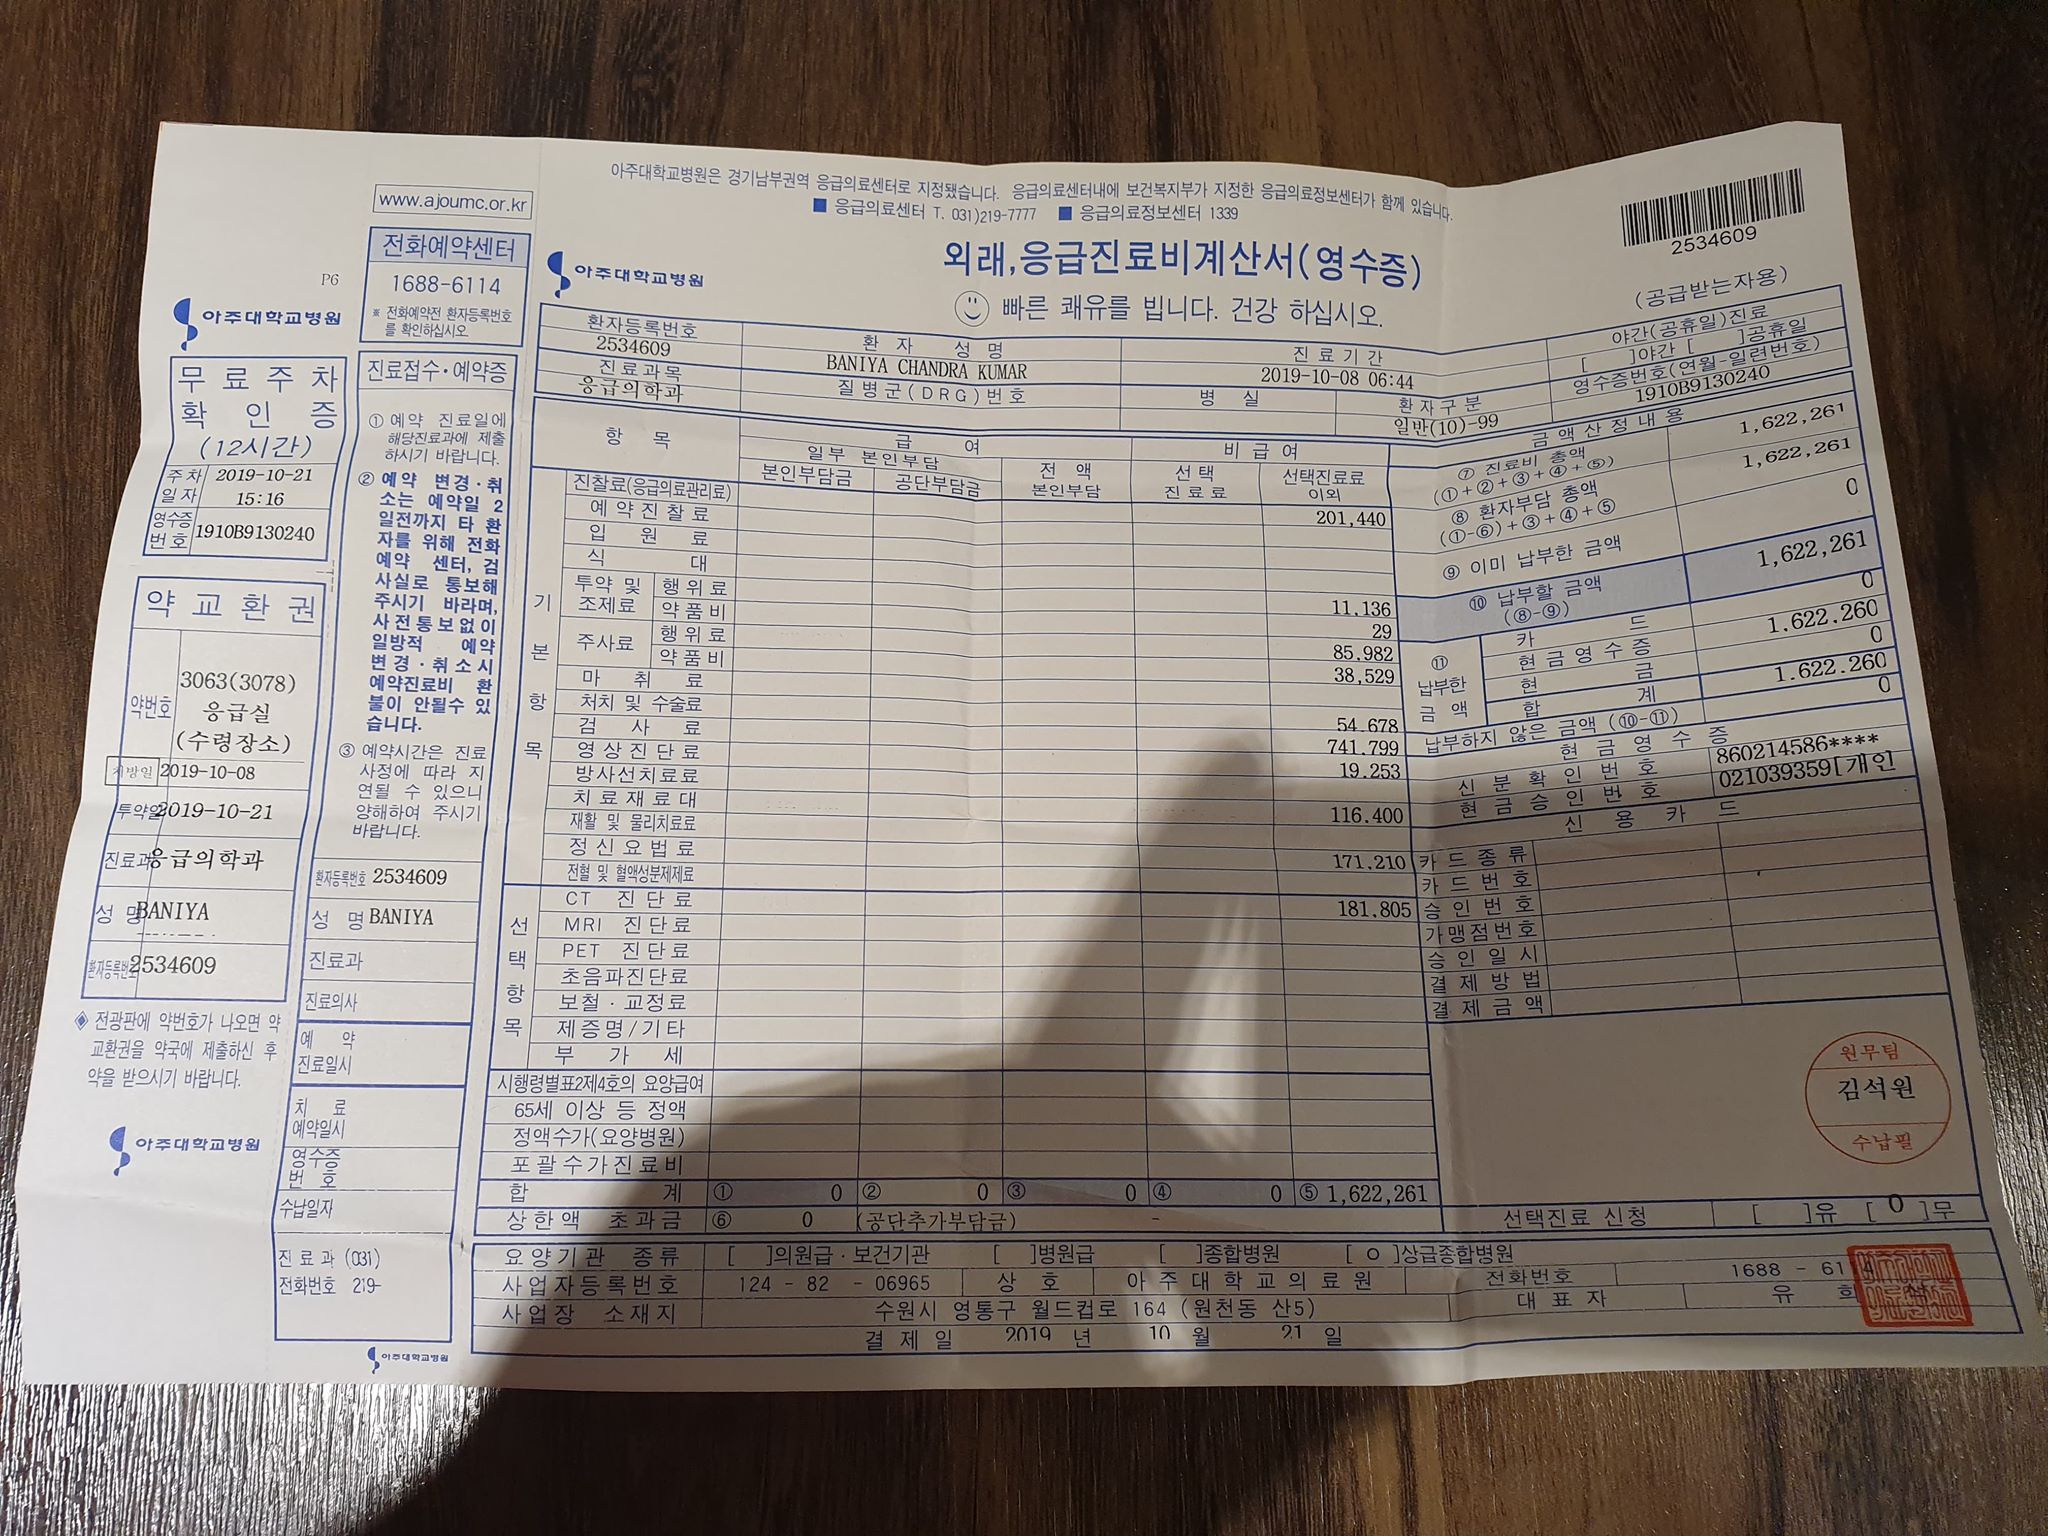 아주대학교병원은 경기남부권역 응급의료센터로 지정됐습니다. 응급의료센터내에 보건복지부가 지정한 응급의료정보센터가 함께 있습니다.
■ 응급의료센터 T. 031)219-7777 ■ 응급의료정보센터 1339
2534609
아주대학교병원
외래,응급진료비계산서(영수증)
빠른 쾌유를 빕니다. 건강 하십시오.
(공급받는자용)
P6
아주대학교병원
무료주차
확인증
(12시간)
주차 일자 2019-10-21 15:16
영수증 번호 1910B9130240
약교환권
약번호 3063(3078)
응급실
(수령장소)
처방일 2019-10-08
투약일 2019-10-21
진료과 응급의학과
성명 BANIYA
환자등록번호 2534609
◈ 전광판에 약번호가 나오면 약
교환권을 약국에 제출하신 후
약을 받으시기 바랍니다.
아주대학교병원
www.ajoumc.or.kr
전화예약센터
1688-6114
※ 전화예약전 환자등록번호
를 확인하십시오.
진료접수·예약증
① 예약 진료일에
해당진료과에 제출
하시기 바랍니다.
② 예약 변경·취
소는 예약일 2
일전까지 타 환
자를 위해 전화
예약 센터, 검
사실로 통보해
주시기 바라며,
사전통보없이
일방적 예약
변경·취소시
예약진료비 환
불이 안될수 있
습니다.
③ 예약시간은 진료
사정에 따라 지
연될 수 있으니
양해하여 주시기
바랍니다.
환자등록번호 2534609
성 명 BANIYA
진료과
진료의사
예 약
진료일시
치 료
예약일시
영수증
번 호
수납일자
진 료 과 (031)
전화번호 219-
아주대학교병원
환자등록번호 환 자 성 명 진 료 기 간 야간(공휴일)진료
2534609 BANIYA CHANDRA KUMAR 2019-10-08 06:44 [ ]야간 [ ]공휴일
진료과목 질병군(DRG)번호 병 실 환자구분 영수증번호(연월-일련번호)
응급의학과 일반(10)-99 1910B9130240
항 목 급 여 비 급 여 금액산정내용
일부 본인부담 전 액 본인부담 선 택 진 료 료 선택진료료 이외
본인부담금 공단부담금
기본항목
진찰료(응급의료관리료)
예약진찰료 201,440
입 원 료
식 대
투약 및 조제료 행위료
약품비 11,136
주사료 행위료 29
약품비 85,982
마 취 료 38,529
처치 및 수술료
검 사 료 54,678
영상진단료 741,799
방사선치료료 19,253
치료재료대
재활 및 물리치료료 116,400
정신요법료
전혈 및 혈액성분제제료 171,210
선택항목
CT 진단료
MRI 진단료 181,805
PET 진단료
초음파진단료
보철·교정료
제증명/기타
부 가 세
시행령별표2제4호의 요양급여
65세 이상 등 정액
정액수가(요양병원)
포괄수가진료비
합 계 ① 0 ② 0 ③ 0 ④ 0 ⑤ 1,622,261
상한액 초과금 ⑥ 0 (공단추가부담금) -
⑦ 진료비 총액 1,622,261
(①+②+③+④+⑤)
⑧ 환자부담 총액 1,622,261
(①-⑥)+③+④+⑤
⑨ 이미 납부한 금액 0
⑩ 납부할 금액 1,622,261
(⑧-⑨)
⑪ 납부한 금 액
카 드 0
현금영수증 1,622,260
현 금 0
합 계 1,622,260
납부하지 않은 금액 (⑩-⑪) 0
현금영수증
신분확인번호 860214586****
현금승인번호 021039359[개인
신용카드
카드종류
카드번호
승인번호
가맹점번호
승인일시
결제방법
결제금액
원무팀
김석원
수납필
선택진료 신청 [ ]유 [ 0 ]무
요양기관 종류 [ ]의원급·보건기관 [ ]병원급 [ ]종합병원 [ o ]상급종합병원
사업자등록번호 124 - 82 - 06965 상 호 아주대학교의료원 전화번호 1688 - 6114
사업장 소재지 수원시 영통구 월드컵로 164 (원천동 산5) 대 표 자 유 희
결 제 일 2019 년 10 월 21 일